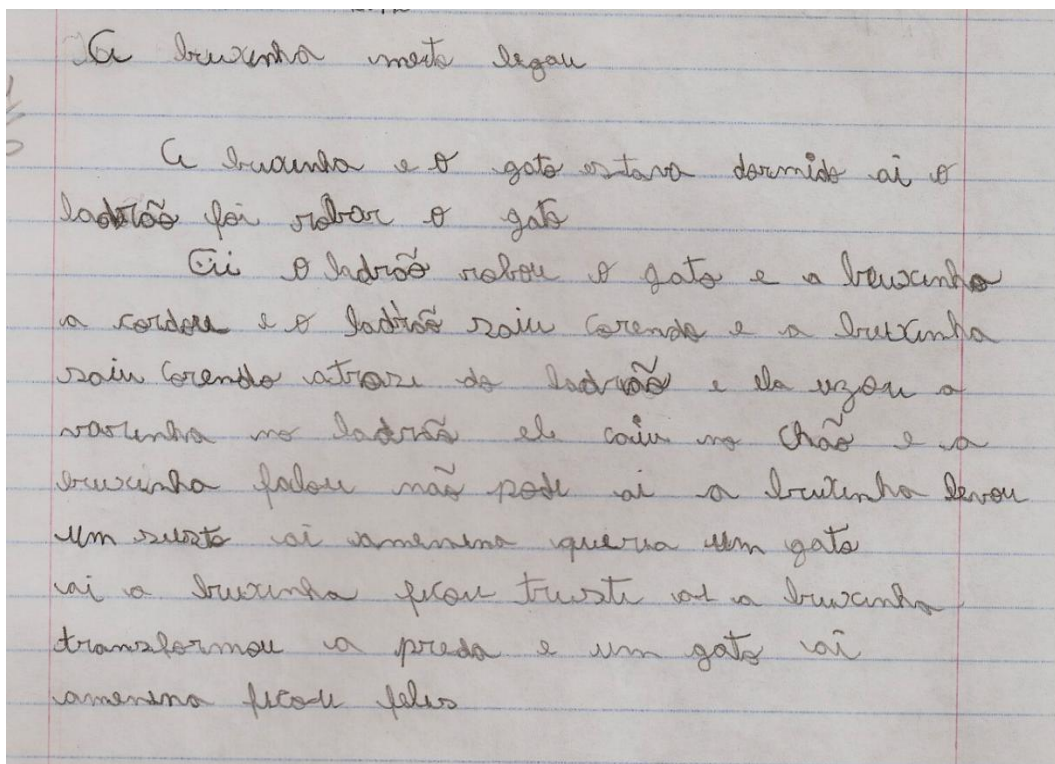 A bruxinha meito legau
A bruxinha e o gato estava dormido ai o
ladrão foi robar o gato
Ai o ladrão robou o gato e a bruxinha
a cordou e o ladrão saiu corendo e a bruxinha
saiu corendo atraze do ladrão e ela uzou a
varinha no ladrão ele caiu no chão e a
bruxinha falou não pode ai a bruxinha levou
um susto ai amenina queria um gato
ai a bruxinha ficou triste ai a bruxinha
transformou a preda e um gato ai
amenina ficou felis